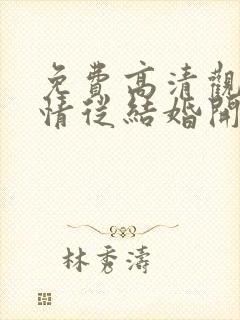 免費高清觀
情從結婚開
林秀濤